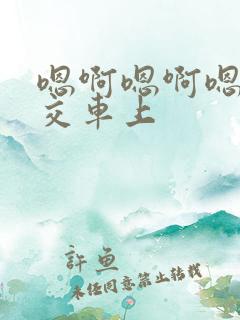 嗯啊嗯啊嗯
交车上
許鱼
未经同意禁止转载